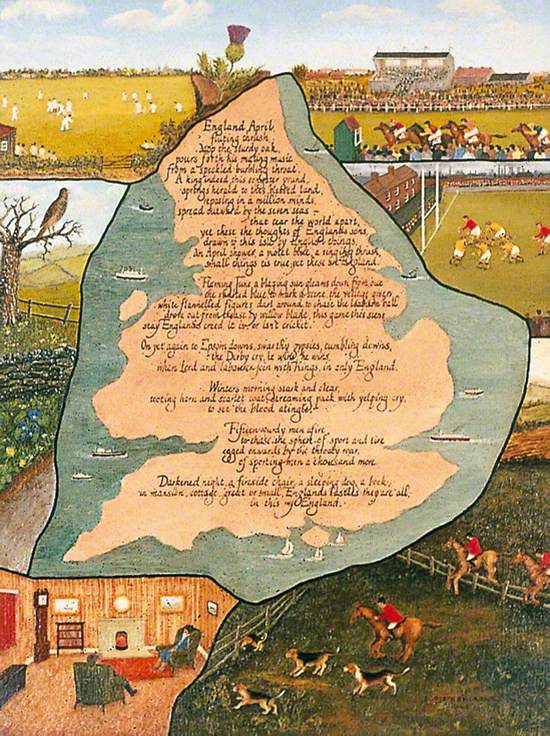 England April,
fluting thrush,
atop the sturdy oak,
pours forth his mating music
from a speckled burbling throat.
A king indeed this songster grand,
springs herald to this blessed land,
reposing in a million minds,
spread outward by the seven seas –
that tear the world apart,
yet these the thoughts of England's sons,
drawn to this isle by English things,
An April shower, a violet blue, a singing thrush,
small things tis true yet these are England.
Flaming June a blazing sun gleams down from out
the skyward blue, to mark a scene the village green,
white flannelled figures dart around to chase the leathern ball
drove out from thence by willow blade, this game this very
stay England's creed it is or isn't cricket.
On yet again to Epsom downs, swarthy gypsies, tumbling clowns,
the Derby cry, he wins, he wins,
when Lord and labourer join with Kings, in only England.
Winters morning stark and clear,
tooting horn and scarlet coat, screaming pack with yelping cry,
to set the blood atingle.
Fifteen sturdy men afire,
to chase the sphere of sport and tire
egged onwards by the throaty roar,
of sporting men a thousand more.
Darkened night, a fireside chair, a sleeping dog, a book,
in mansion, cottage, great or small, Englands castles they are all,
in this my England.